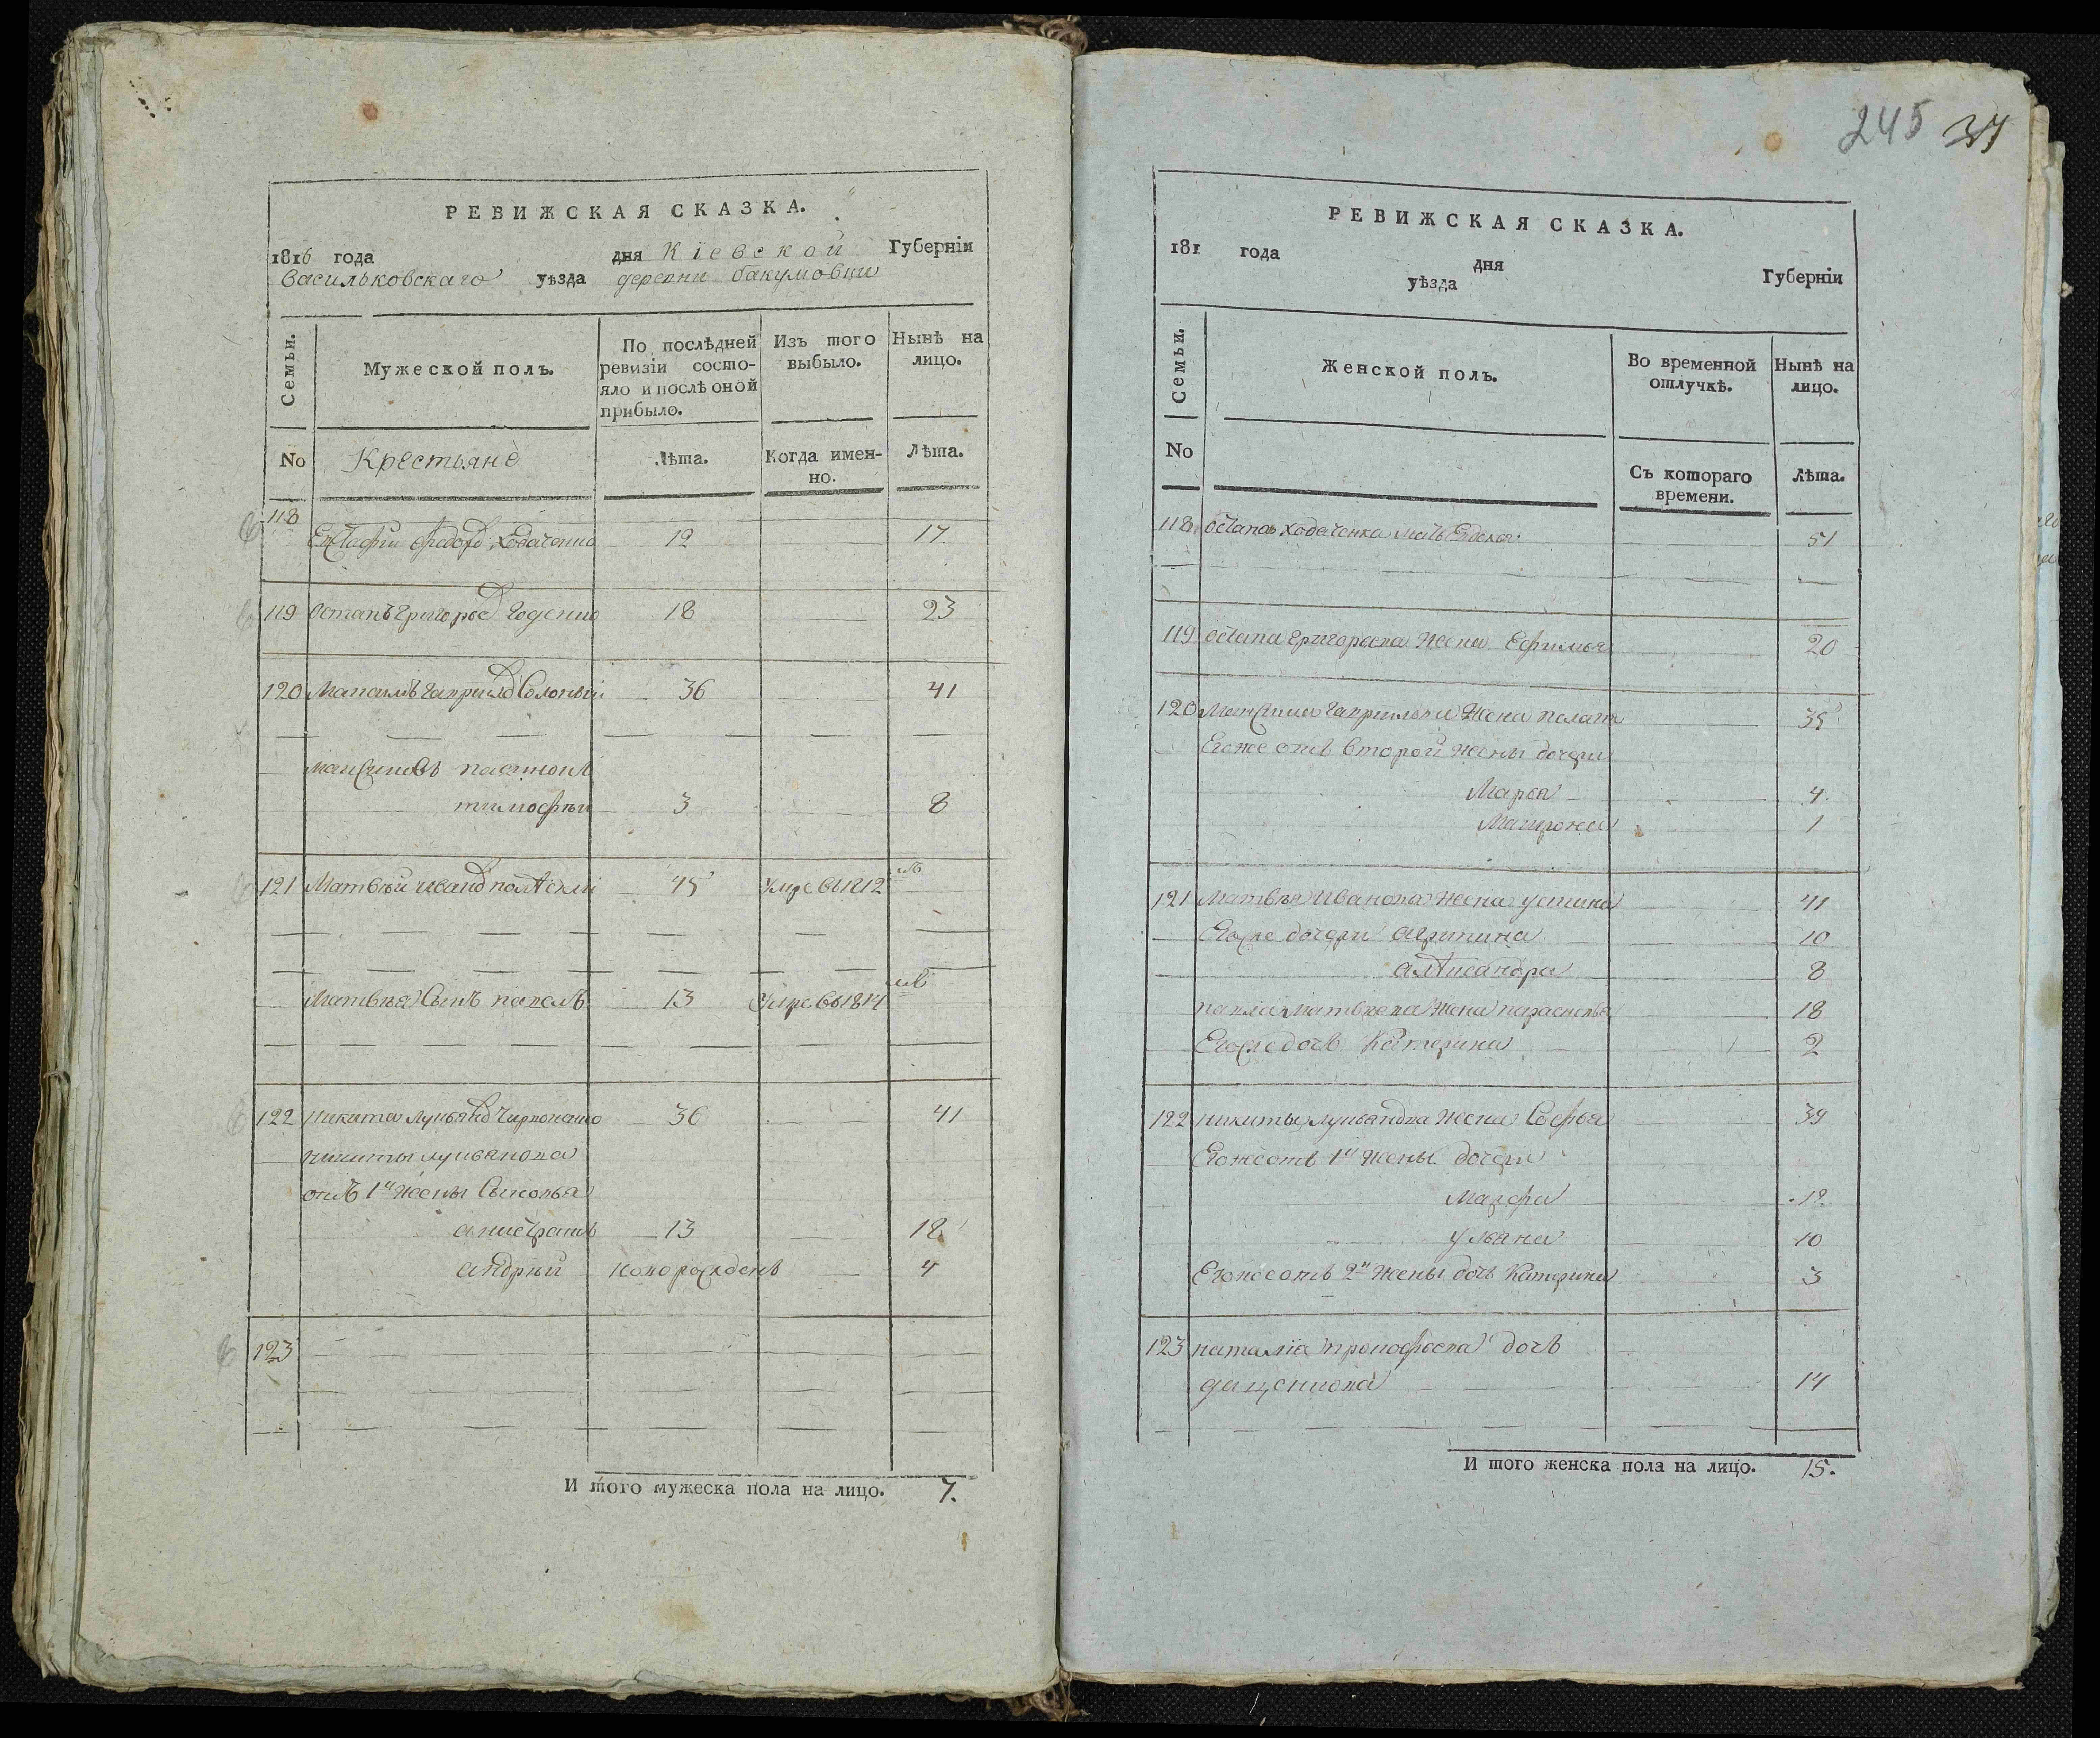 245 37
РЕВИЖСКАЯ СКАЗКА.
1816 года дня Кіевской Губерніи
Васильковскаго уѣзда деревни бакумовки
Семьи.
Мужеской полъ.
По послѣдней ревизіи состо-
яло и послѣ оной
прибыло.
Изъ того
выбыло.
Нынѣ на
лицо.
No Крестьянѣ Лѣта. Когда имен-
но. Лѣта.
118
Ефстафій Федоро Ходаченко 12 17
119 Остапъ Григоров 18 23
120 Максимъ Гаврило 36 41
Максимовъ пасынокъ
тимофѣй 3 8
121 Матвѣй Ивано 45 Умре вы 1812мъ
Матвѣя Сынъ павелъ 13 Умре вы 1814мъ
122 никита лукьяно 36 41
никиты лукянова
отъ 1й жены Сыновья
калистратъ 13 18
андрѣй новорожденъ 4
123
И того мужеска пола на лицо. 7.
РЕВИЖСКАЯ СКАЗКА.
181 года дня
уѣзда Губерніи
Семьи.
Женской полъ.
Во временной
отлучкѣ.
Нынѣ на
лицо.
No Съ котораго
времени. Лѣта.
118 Остапа Ходаченка мать Евдокія 51
119 Остапа Григорьева жена Ефимья 20
120 Максима Гаврилова жена 35
Егоже отъ второй жены дочери
Марья 4
Матрона 1
121 Матвѣя Иванова жена устина 41
Егоже дочери агрипина 10
александра 8
павла матвѣева жена парасковья 18
Егоже дочь Катерина 2
122 никиты лукьянова жена Софья 39
Егоже отъ 1й жены дочери
Марфа 12
ульяна 10
Егоже отъ 2й жены дочь Катерина 3
123 наталія прокофьева дочь
дащенкова 14
И того женска пола на лицо. 15.